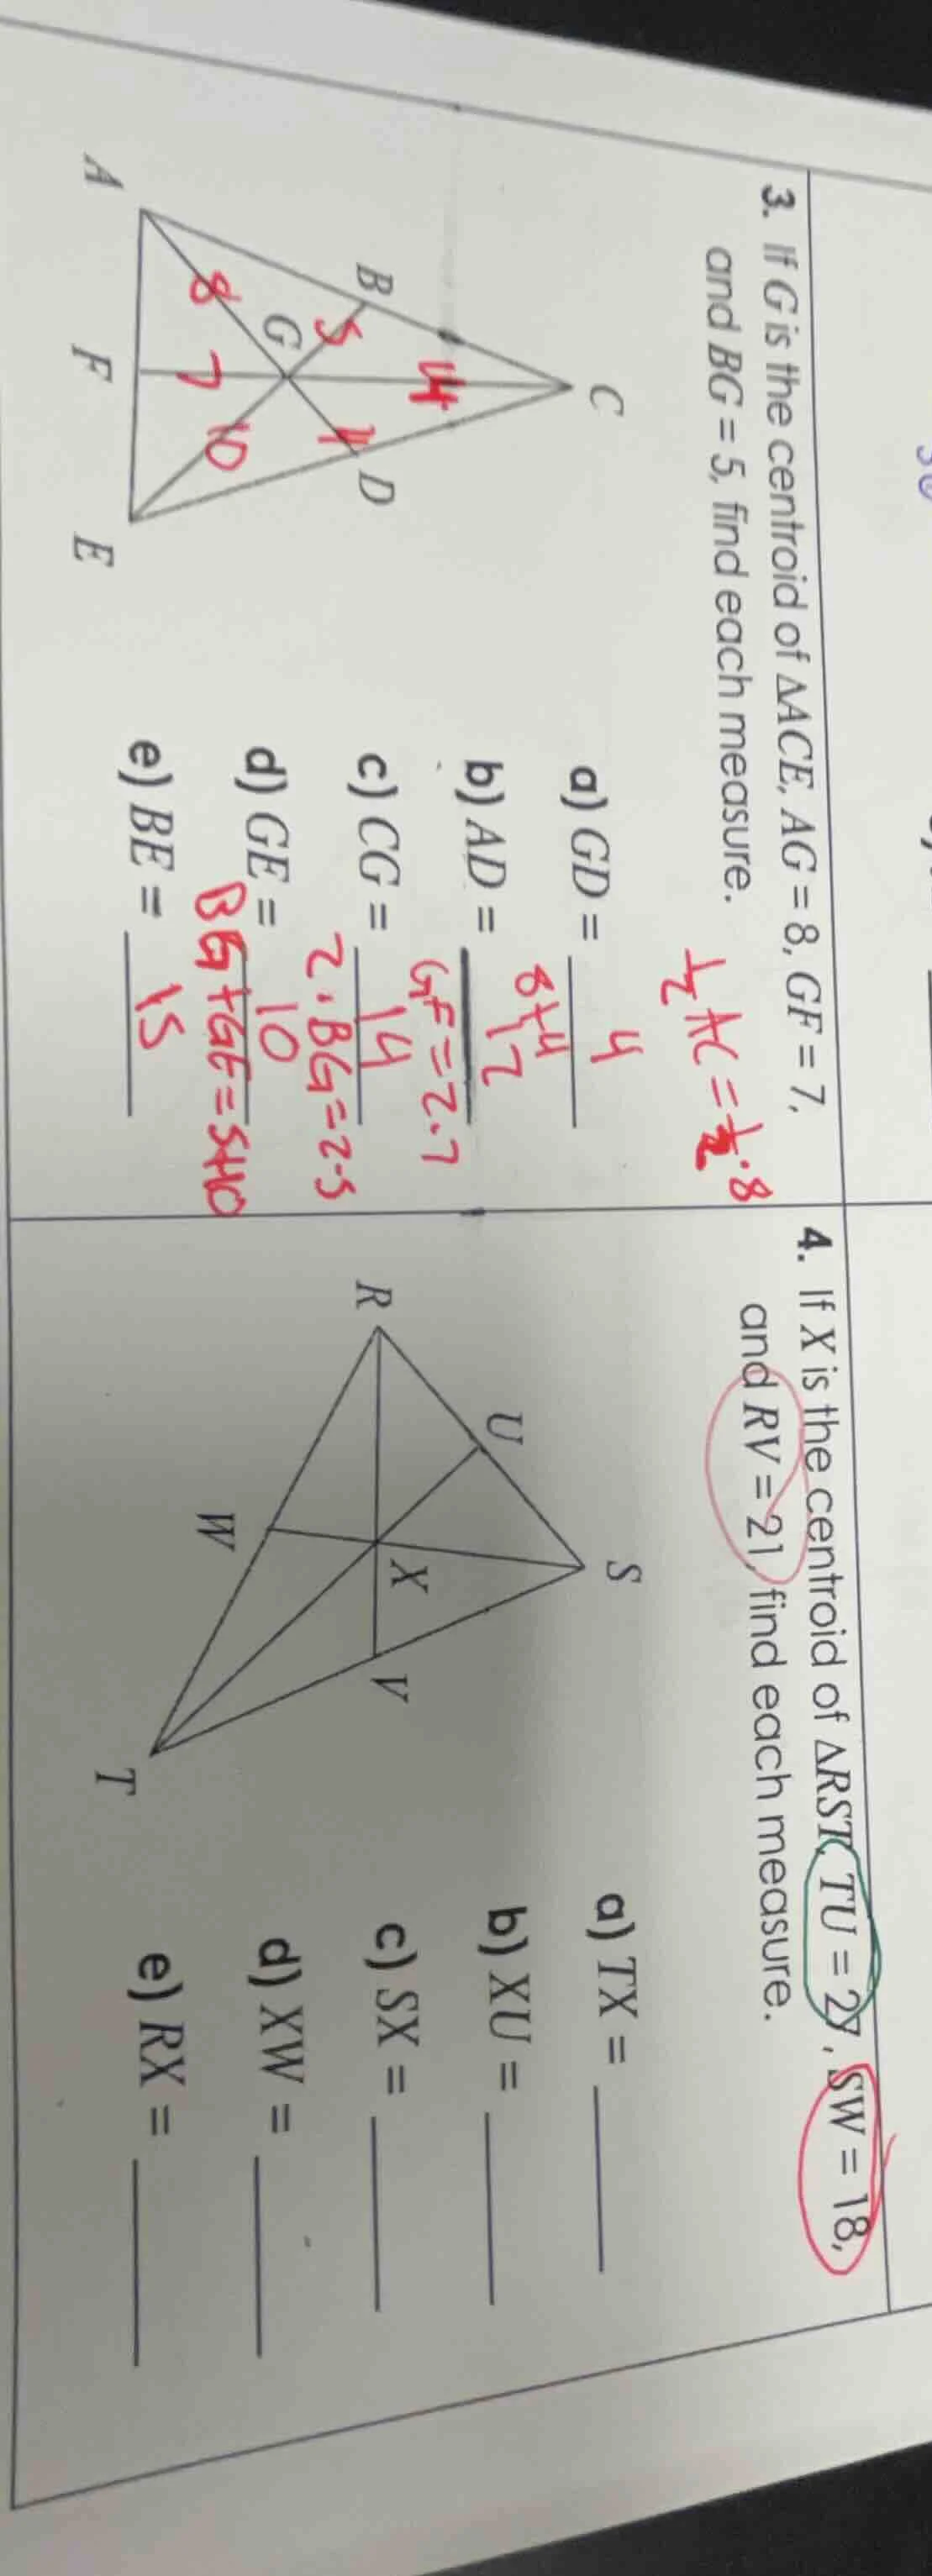 3. If G is the centroid of ΔACE, AG = 8, GF = 7,
and BG = 5, find each measure.
½ AC = ½·8
C
B
D
G
A
F
E
14
5
4
8
7
10
a) GD = 4
8+4
b) AD = 12
GF = 2·7
c) CG = 14
2·BG = 2·5
d) GE = 10
BG+GE = 5+10
e) BE = 15
4. If X is the centroid of ΔRST, TU = 27, SW = 18,
and RV = 21, find each measure.
S
U
R
X
V
W
T
a) TX =
b) XU =
c) SX =
d) XW =
e) RX =